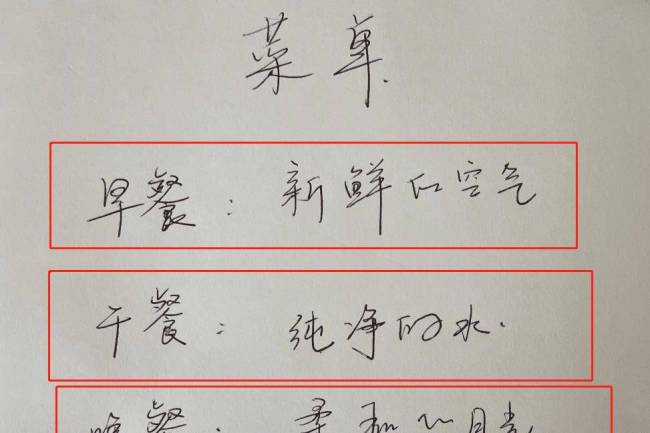 菜单
早餐：新鲜的空气
午餐：纯净的水.
晚餐：柔和的月光